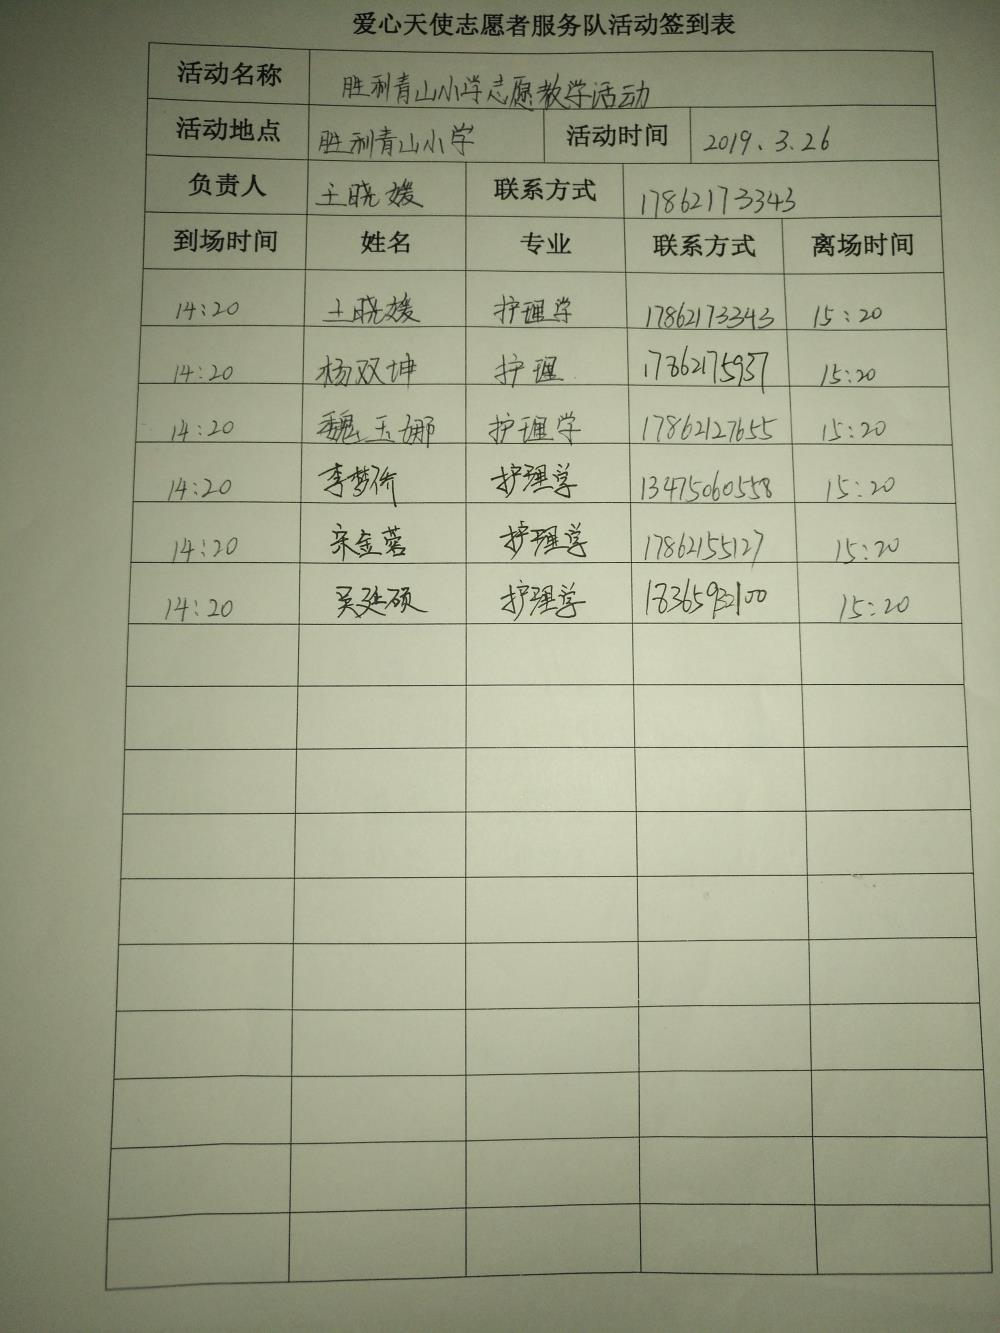 爱心天使志愿者服务队活动签到表
活动名称 胜利青山小学志愿教学活动
活动地点 胜利青山小学 活动时间 2019.3.26
负责人 王晓媛 联系方式 17862173343
到场时间 姓名 专业 联系方式 离场时间
14:20 王晓媛 护理学 17862173343 15:20
14:20 杨双坤 护理 17862175937 15:20
14:20 魏玉娜 护理学 17862127655 15:20
14:20 李梦侨 护理学 13475060558 15:20
14:20 宋金蓉 护理学 17862155127 15:20
14:20 吴廷硕 护理学 18365932100 15:20